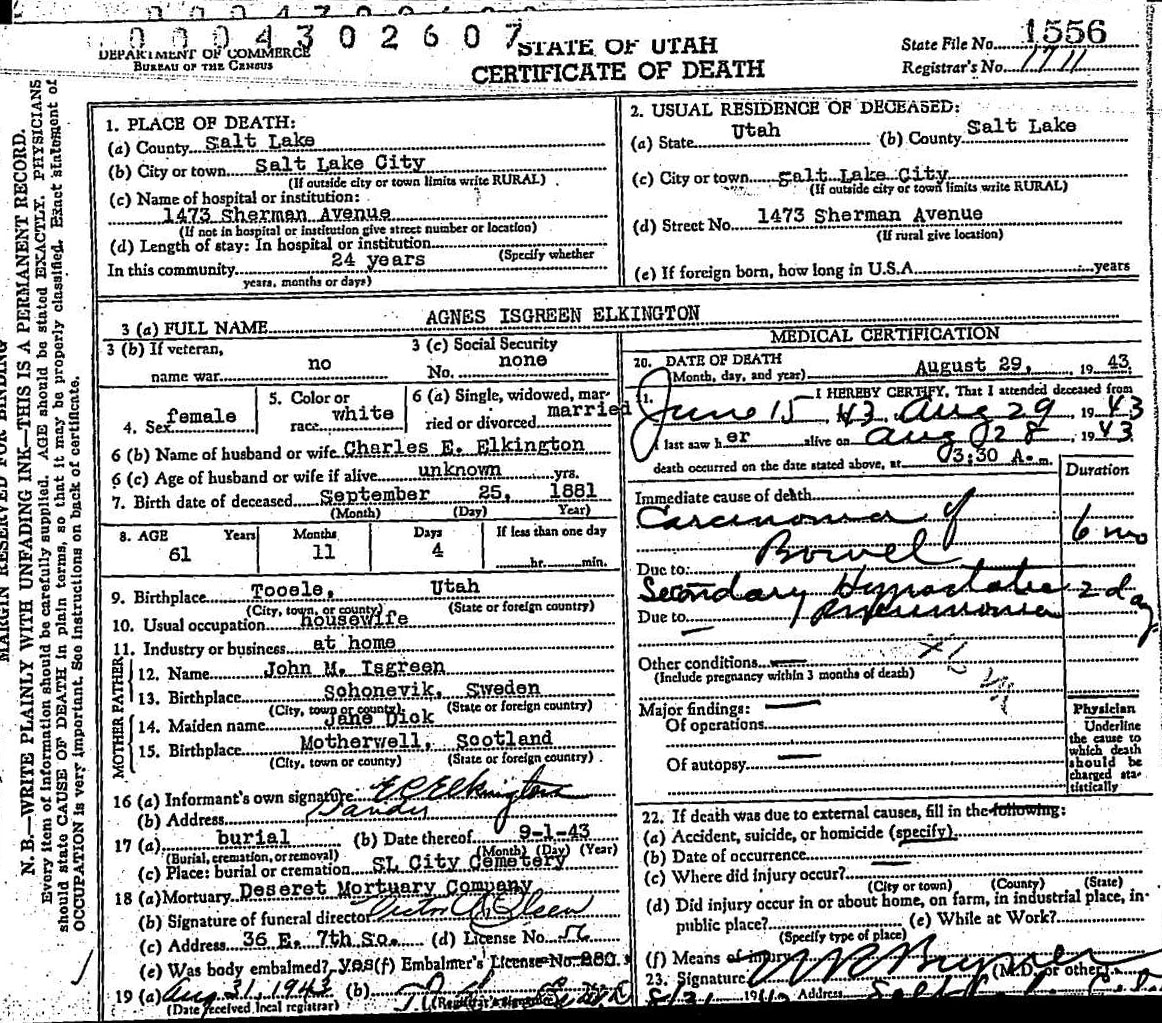 0 0 0 4 3 0 2 6 0 7
DEPARTMENT OF COMMERCE
BUREAU OF THE CENSUS
STATE OF UTAH
CERTIFICATE OF DEATH
State File No. 1556
Registrar's No. 1711
MARGIN RESERVED FOR BINDING
N. B.—WRITE PLAINLY WITH UNFADING INK—THIS IS A PERMANENT RECORD.
Every item of information should be carefully supplied. AGE should be stated EXACTLY. PHYSICIANS
should state CAUSE OF DEATH in plain terms, so that it may be properly classified. Exact statement of
OCCUPATION is very important. See instructions on back of certificate.
1. PLACE OF DEATH:
(a) County Salt Lake
(b) City or town Salt Lake City
(If outside city or town limits write RURAL)
(c) Name of hospital or institution:
1473 Sherman Avenue
(If not in hospital or institution give street number or location)
(d) Length of stay: In hospital or institution
(Specify whether
In this community 24 years
years, months or days)
2. USUAL RESIDENCE OF DECEASED:
(a) State Utah (b) County Salt Lake
(c) City or town Salt Lake City
(If outside city or town limits write RURAL)
(d) Street No. 1473 Sherman Avenue
(If rural give location)
(e) If foreign born, how long in U.S.A. years
3 (a) FULL NAME AGNES ISGREEN ELKINGTON
3 (b) If veteran,
name war no
3 (c) Social Security
No. none
4. Sex female
5. Color or
race white
6 (a) Single, widowed, mar-
ried or divorced married
6 (b) Name of husband or wife Charles E. Elkington
6 (c) Age of husband or wife if alive unknown yrs.
7. Birth date of deceased September 25, 1881
(Month) (Day) Year)
8. AGE Years Months Days If less than one day
61 11 4 hr. min.
9. Birthplace Tooele, Utah
(City, town, or county) (State or foreign country)
10. Usual occupation housewife
11. Industry or business at home
FATHER
12. Name John M. Isgreen
13. Birthplace Schonevik, Sweden
(City, town or county) (State or foreign country)
MOTHER
14. Maiden name Jane Dick
15. Birthplace Motherwell, Scotland
(City, town or county) (State or foreign country)
16 (a) Informant's own signature E Elkington
(b) Address Sandy
17 (a) burial (b) Date thereof 9-1-43
(Burial, cremation, or removal) (Month) (Day) (Year)
(c) Place: burial or cremation SL City Cemetery
18 (a) Mortuary Deseret Mortuary Company
(b) Signature of funeral director Victor Olsen
(c) Address 36 E. 7th So. (d) License No.
(e) Was body embalmed? yes (f) Embalmer's License No. 280.
19 (a) Aug 31, 1943 (b)
(Date received local registrar) (Registrar's signature)
MEDICAL CERTIFICATION
20. DATE OF DEATH
(Month, day, and year) August 29, 19 43.
21. I HEREBY CERTIFY, That I attended deceased from
June 15 43, Aug 29, 19 43
I last saw her alive on Aug 28, 1943
death occurred on the date stated above, at 03:30 A. m.
Duration
Immediate cause of death
Carcinoma of 6 mo
Bowel
Due to:
Secondary Hypostatic 2 days
Due to Pneumonia
Other conditions
(Include pregnancy within 3 months of death)
Major findings:
Of operations
Of autopsy
Physician
Underline
the cause to
which death
should be
charged sta-
tistically
22. If death was due to external causes, fill in the following:
(a) Accident, suicide, or homicide (specify)
(b) Date of occurrence
(c) Where did injury occur?
(City or town) (County) (State)
(d) Did injury occur in or about home, on farm, in industrial place, in-
public place? (e) While at Work?
(Specify type of place)
(f) Means of injury
23. Signature (M.D. or other)
8/31 19 Address